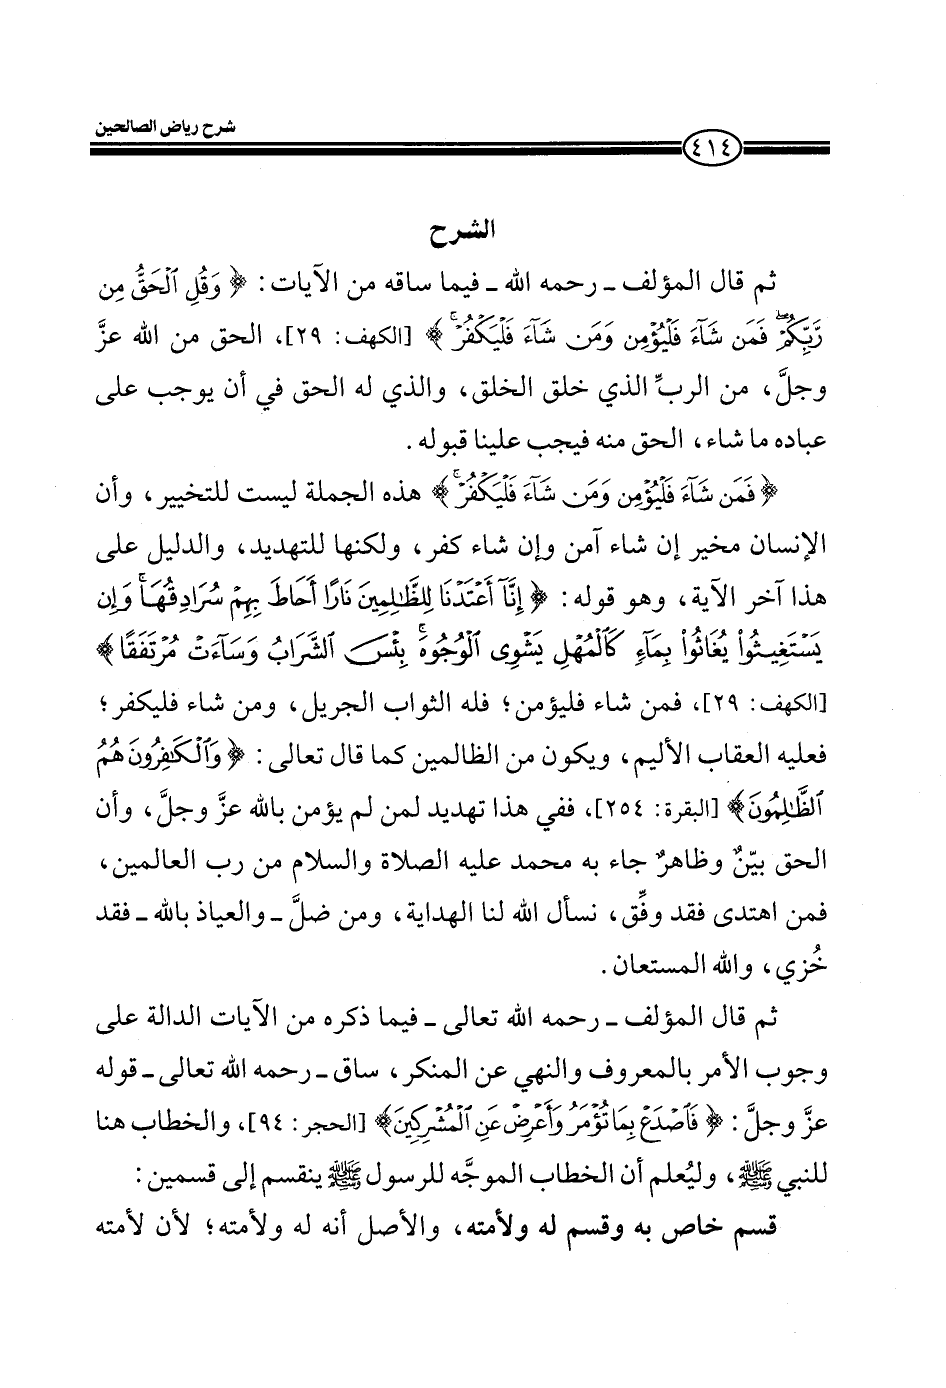 شرح رياض الصالحين
٤١٤
الشرح
ثم قال المؤلف ـ رحمه الله ـ فيما ساقه من الآيات: ﴿ وَقُلِ ٱلْحَقُّ مِن
رَّبِّكُمْ ۖ فَمَن شَآءَ فَلْيُؤْمِن وَمَن شَآءَ فَلْيَكْفُرْ ۚ ﴾ [الكهف: ٢٩]، الحق من الله عزَّ
وجلَّ، من الربِّ الذي خلق الخلق، والذي له الحق في أن يوجب على
عباده ما شاء، الحق منه فيجب علينا قبوله.
﴿ فَمَن شَآءَ فَلْيُؤْمِن وَمَن شَآءَ فَلْيَكْفُرْ ۚ ﴾ هذه الجملة ليست للتخيير، وأن
الإنسان مخير إن شاء آمن وإن شاء كفر، ولكنها للتهديد، والدليل على
هذا آخر الآية، وهو قوله: ﴿ إِنَّآ أَعْتَدْنَا لِلظَّٰلِمِينَ نَارًا أَحَاطَ بِهِمْ سُرَادِقُهَا ۚ وَإِن
يَسْتَغِيثُوا۟ يُغَاثُوا۟ بِمَآءٍ كَٱلْمُهْلِ يَشْوِى ٱلْوُجُوهَ ۚ بِئْسَ ٱلشَّرَابُ وَسَآءَتْ مُرْتَفَقًا ﴾
[الكهف: ٢٩]، فمن شاء فليؤمن؛ فله الثواب الجريل، ومن شاء فليكفر؛
فعليه العقاب الأليم، ويكون من الظالمين كما قال تعالى: ﴿ وَٱلْكَٰفِرُونَ هُمُ
ٱلظَّٰلِمُونَ ﴾ [البقرة: ٢٥٤]، ففي هذا تهديد لمن لم يؤمن بالله عزَّ وجلَّ، وأن
الحق بيّنٌ وظاهرٌ جاء به محمد عليه الصلاة والسلام من رب العالمين،
فمن اهتدى فقد وفِّق، نسأل الله لنا الهداية، ومن ضلَّ ـ والعياذ بالله ـ فقد
خُزي، والله المستعان.
ثم قال المؤلف ـ رحمه الله تعالى ـ فيما ذكره من الآيات الدالة على
وجوب الأمر بالمعروف والنهي عن المنكر، ساق ـ رحمه الله تعالى ـ قوله
عزَّ وجلَّ: ﴿ فَٱصْدَعْ بِمَا تُؤْمَرُ وَأَعْرِضْ عَنِ ٱلْمُشْرِكِينَ ﴾ [الحجر: ٩٤]، والخطاب هنا
للنبي ﷺ، وليُعلم أن الخطاب الموجَّه للرسول ﷺ ينقسم إلى قسمين:
قسم خاص به وقسم له ولأمته، والأصل أنه له ولأمته؛ لأن لأمته